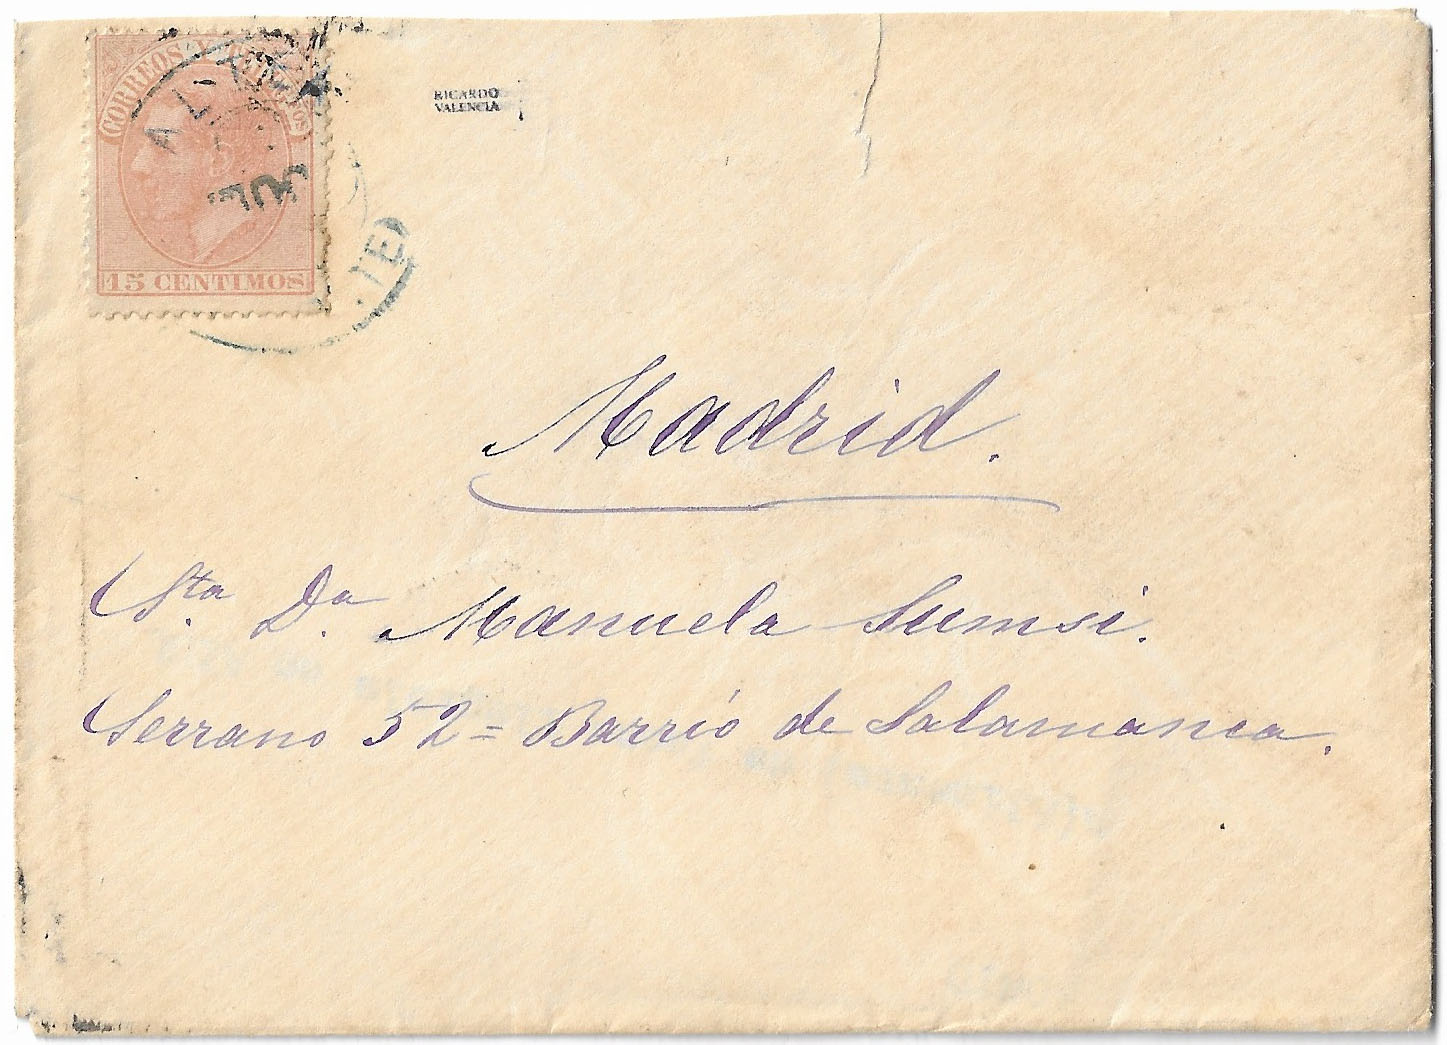 CORREOS Y
15 CENTIMOS
ALI
JUL
TE)
RICARDO
VALENCIA
Madrid.
Sta. Da. Manuela Sumsi.
Serrano 52 = Barrio de Salamanca.